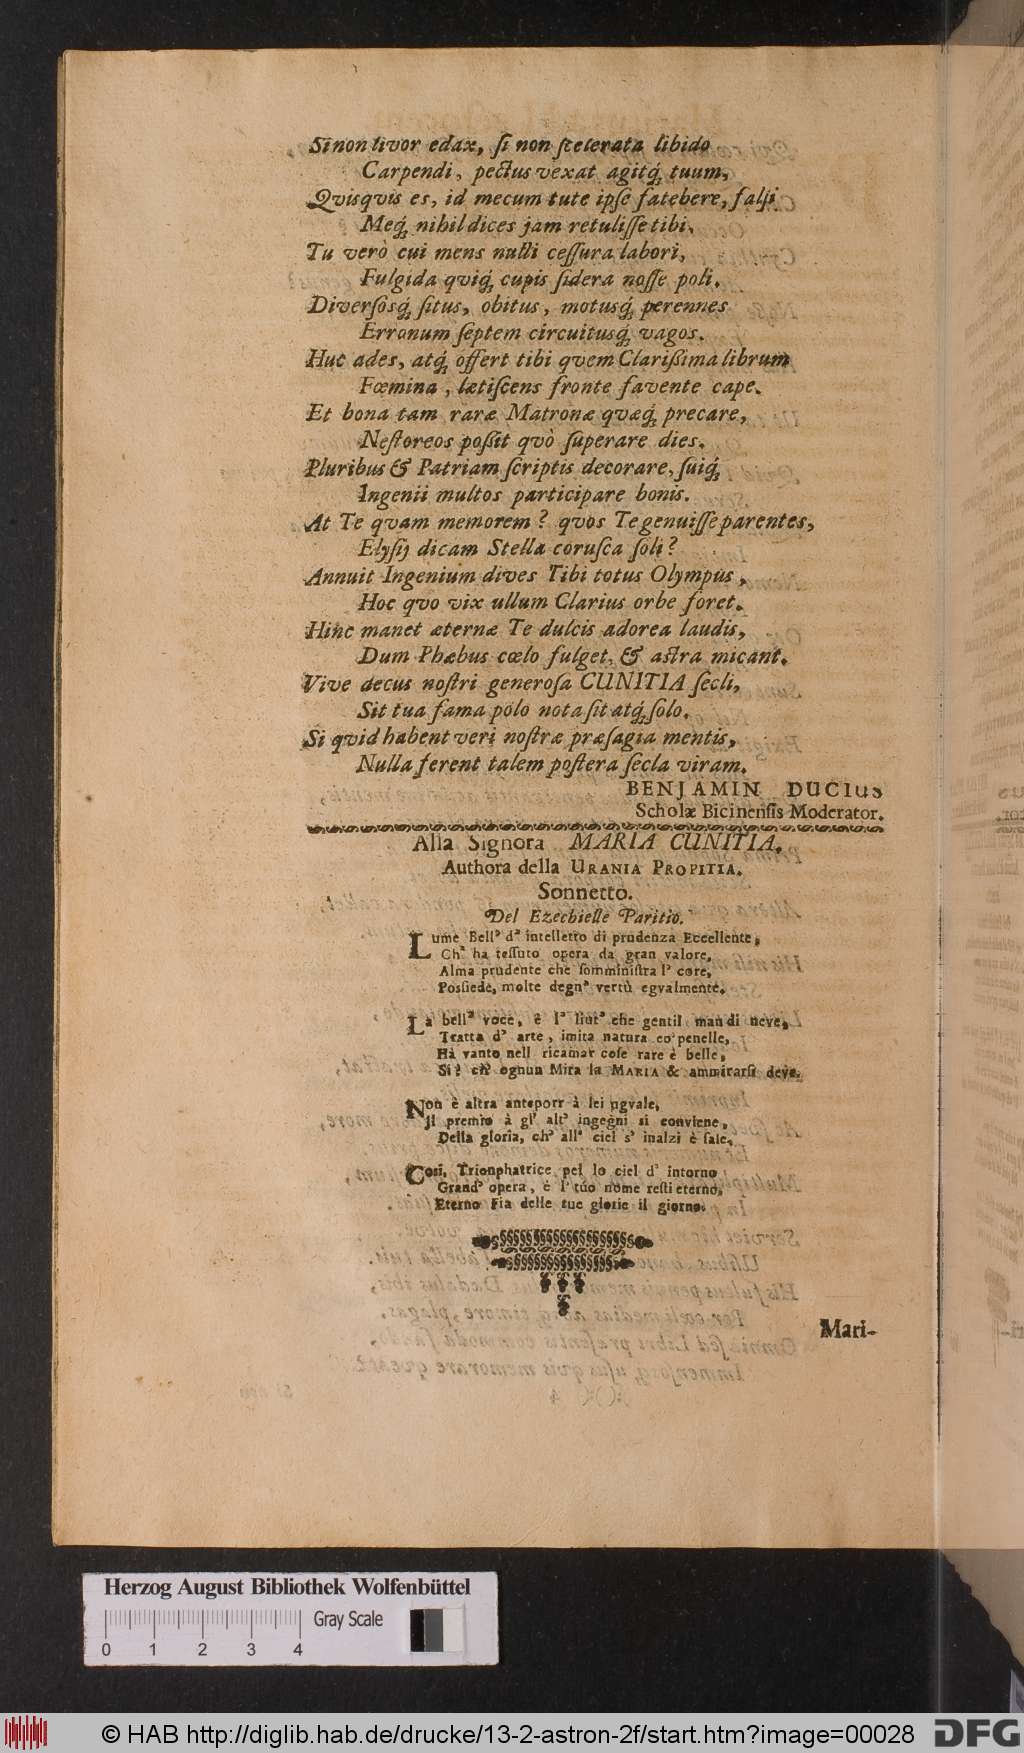 Si non livor edax, ſi non ſcelerata libido
Carpendi, pectus vexat agitq́; tuum,
Qvisqvis es, id mecum tute ipſe fatebere, falſi
Meq́; nihil dices jam retuliſſe tibi.
Tu verò cui mens nulli ceſſura labori,
Fulgida qviq́; cupis ſidera noſſe poli.
Diverſosq́; ſitus, obitus, motusq́; perennes
Erronum ſeptem circuitusq́; vagos.
Huc ades, atq́; offert tibi qvem Clarißima librum
Fœmina, lætiſcens fronte favente cape.
Et bona tam raræ Matronæ qvæq́; precare,
Neſtoreos poßit qvò ſuperare dies.
Pluribus & Patriam ſcriptis decorare, ſuiq́;
Ingenii multos participare bonis.
At Te qvam memorem? qvos Te genuiſſe parentes,
Elyſij dicam Stella coruſca ſoli?
Annuit Ingenium dives Tibi totus Olympus,
Hoc qvo vix ullum Clarius orbe foret.
Hinc manet æternæ Te dulcis adorea laudis,
Dum Phæbus cœlo fulget, & aſtra micant.
Vive decus noſtri generoſa CUNITIA ſecli,
Sit tua fama polo nota ſit atq́; ſolo.
Si qvid habent veri noſtræ præſagia mentis,
Nulla ferent talem poſtera ſecla viram.
BENJAMIN DUCIUS
Scholæ Bicinenſis Moderator.
Alla Signora MARIA CUNITIA.
Authora della URANIA PROPITIA.
Sonnetto.
Del Ezechielle Paritio.
Lume Bell' d' intelletto di prudenza Eccellente,
Ch' ha teſſuto opera da gran valore,
Alma prudente che ſomminiſtra l' core,
Poſſiede, molte degn' vertù egvalmente.
La bell' voce, è l' liut' che gentil man di neve,
Tratta d' arte, imita natura co' penelle,
Hà vanto nell ricamar coſe rare è belle,
Si? ch' ognun Mira la MARIA & ammirarſi deve.
Non è altra anteporr à lei ugvale,
Il premio à gl' alt' ingegni si conviene,
Della gloria, ch' all' ciel s' inalzi è ſale,
Coſi, Trionphatrice pel lo ciel d' intorno
Grand' opera, è l' túo nome reſti eterno,
Eterno Fia delle tue glorie il giorno.
Mari-
Herzog August Bibliothek Wolfenbüttel
Gray Scale
0 1 2 3 4
© HAB http://diglib.hab.de/drucke/13-2-astron-2f/start.htm?image=00028
DFG